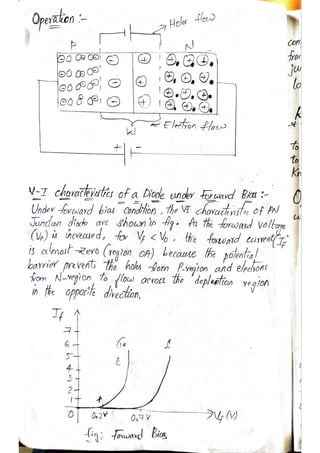 Operation :-
Holes flow
P N
W
Electron flow
+ -
V-I characteristics of a Diode under Forward Bias :-
Under forward bias condition, the VI characteristic of PN
Junction diode are shown in fig. As the forward voltage
(Vf) is increased, for Vf < Vo, the forward current If
is almost zero (region OA) because the potential
barrier prevents the holes from P-region and electrons
from N-region to flow across the depletion region
in the opposite direction.
If
7
6
5
4
3
2
1
0 0.2V 0.7V Vf (V)
fig: Forward Bias